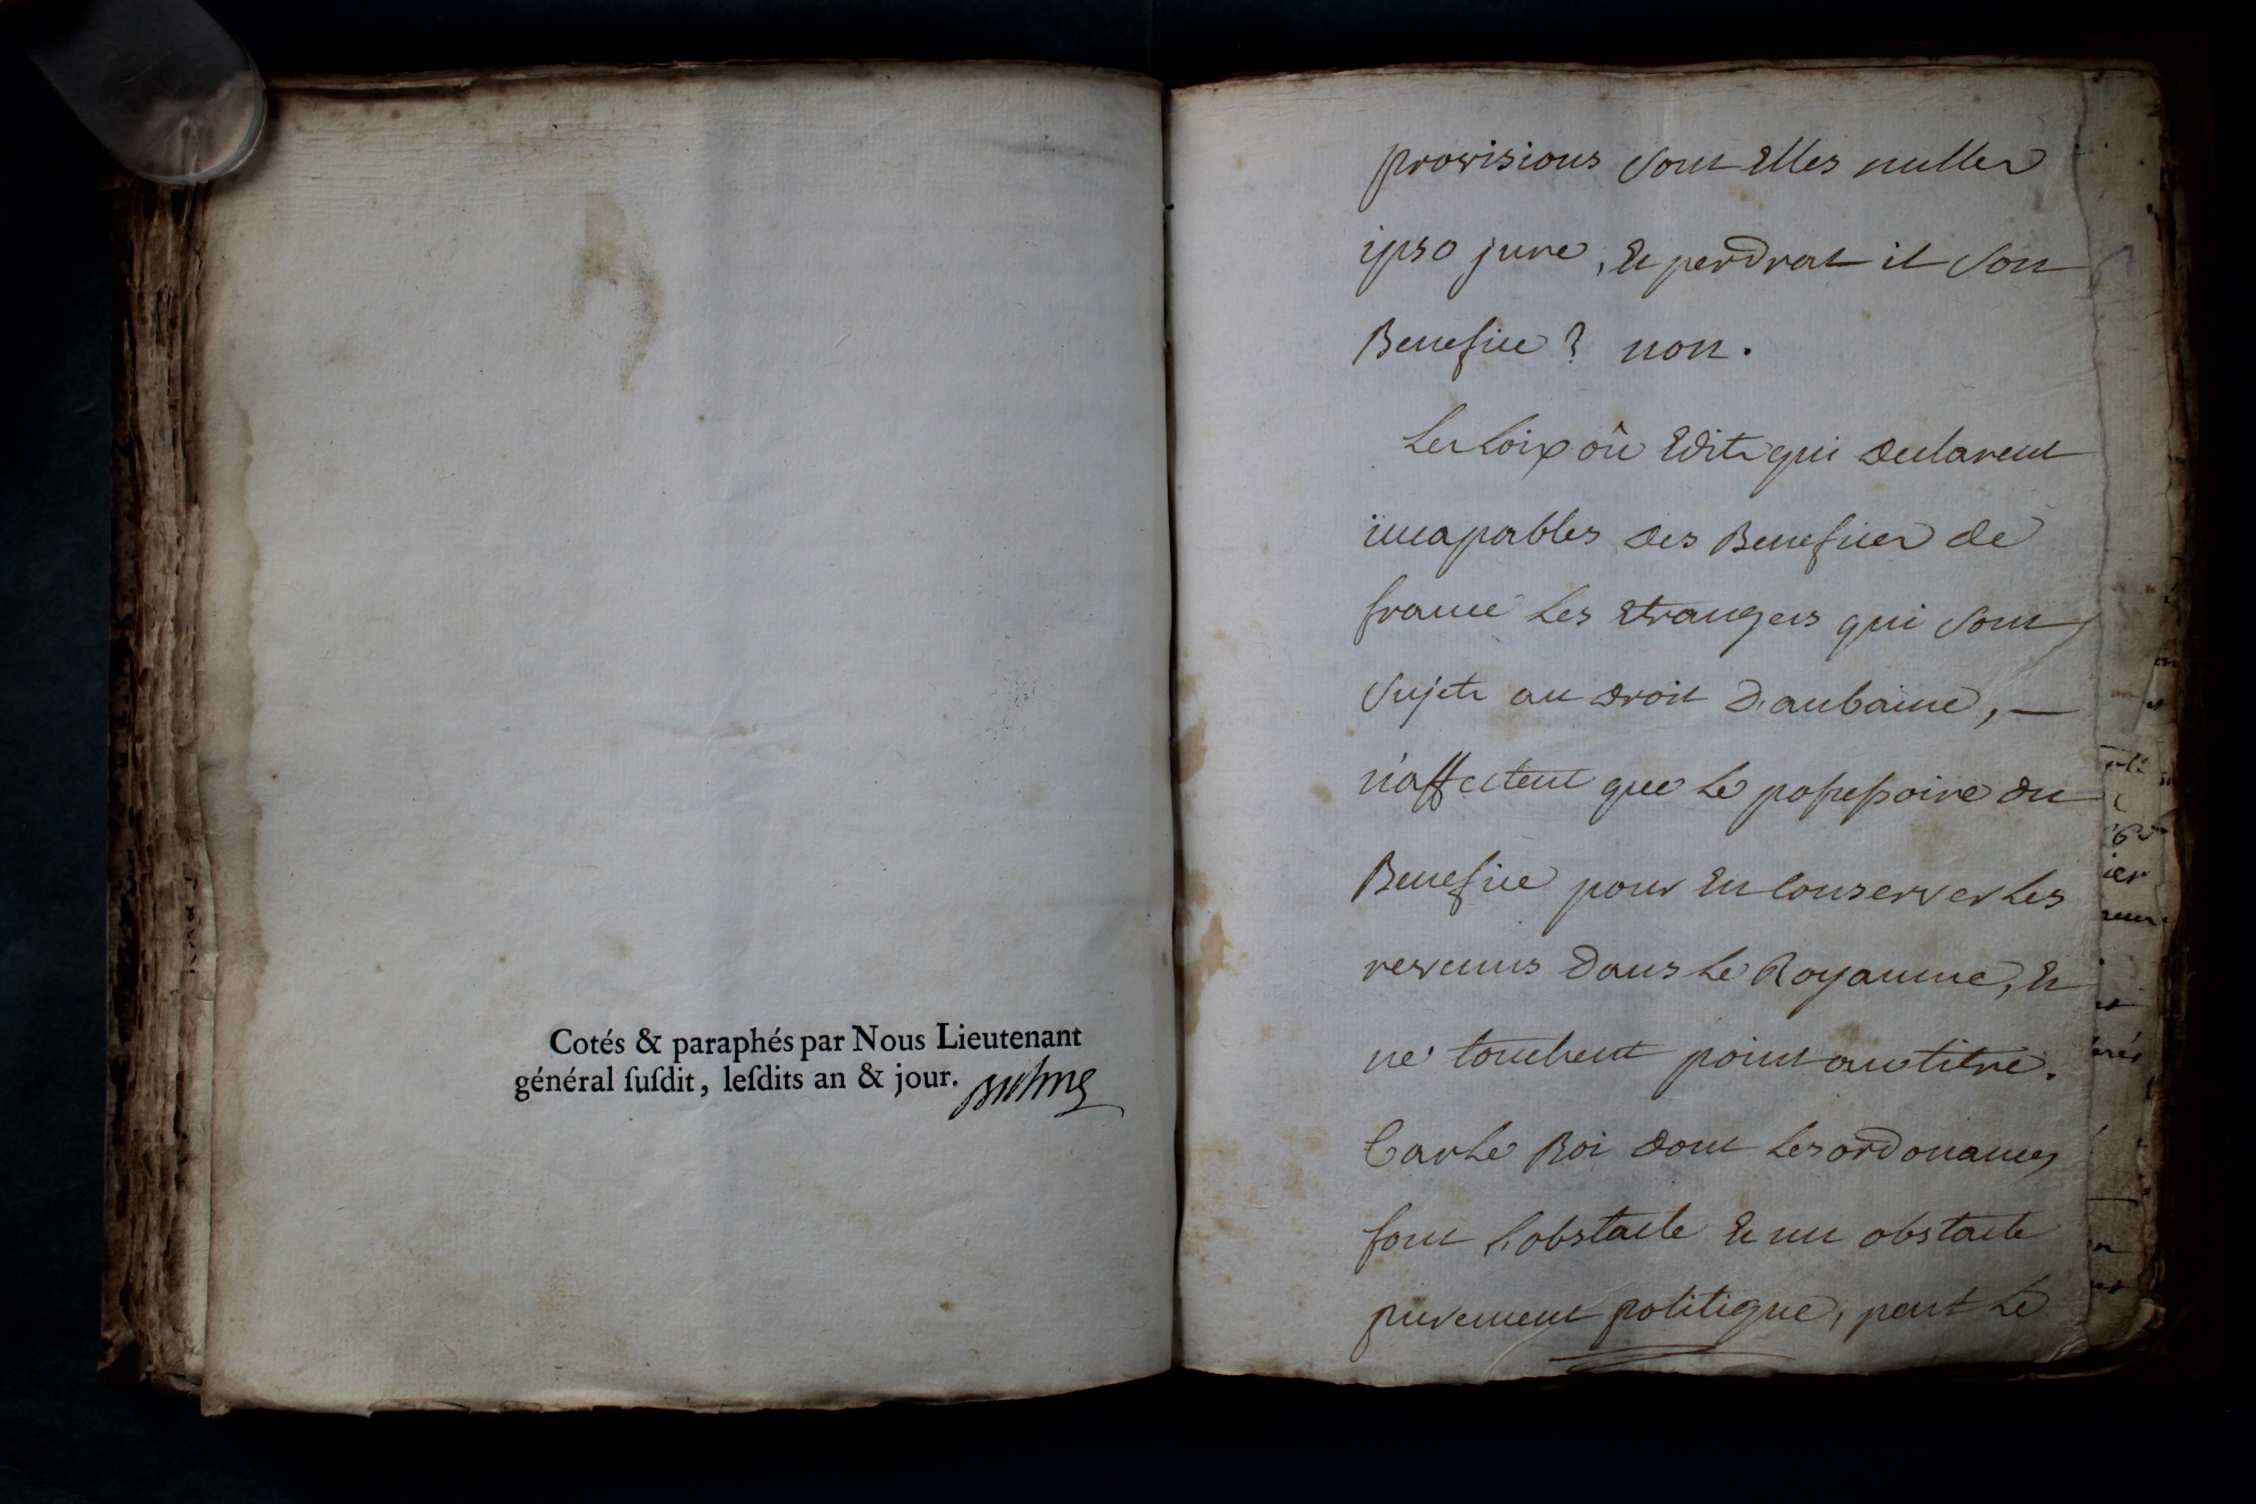 Cotés & paraphés par Nous Lieutenant
général ſuſdit, leſdits an & jour.
provisions sont Elles nulles
ipso jure, Et perdrat il son
Benefice ? non.
Les Loix où Edits qui declarent
incapables des Benefices de
france Les Etrangers qui sont
sujets au droit d'aubaine, —
n'affectent que Le possessoire du
Benefice pour En Conserver Les
revenus dans Le Royaume, Et
ne touchent point au titre.
Car Le Roi dont Les ordonances
font L'obstacle Et un obstacle
purement politique, peut Le